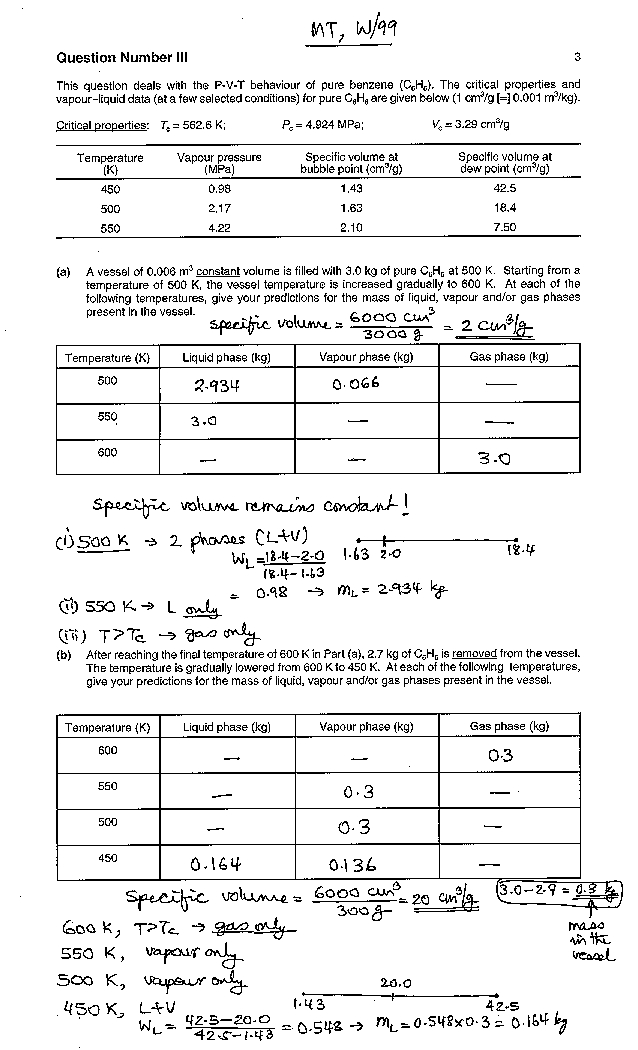 MT, W/99
Question Number III 3
This question deals with the P-V-T behaviour of pure benzene (C₆H₆). The critical properties and
vapour–liquid data (at a few selected conditions) for pure C₆H₆ are given below (1 cm³/g [=] 0.001 m³/kg).
Critical properties: T꜀ = 562.6 K; P꜀ = 4.924 MPa; V꜀ = 3.29 cm³/g
Temperature (K) Vapour pressure (MPa) Specific volume at bubble point (cm³/g) Specific volume at dew point (cm³/g)
450 0.98 1.43 42.5
500 2.17 1.63 18.4
550 4.22 2.10 7.50
(a) A vessel of 0.006 m³ constant volume is filled with 3.0 kg of pure C₆H₆ at 500 K. Starting from a
temperature of 500 K, the vessel temperature is increased gradually to 600 K. At each of the
following temperatures, give your predictions for the mass of liquid, vapour and/or gas phases
present in the vessel.
Specific volume = 6000 cm³ / 3000 g = 2 cm³/g
Temperature (K) Liquid phase (kg) Vapour phase (kg) Gas phase (kg)
500 2.934 0.066 —
550 3.0 — —
600 — — 3.0
Specific volume remains constant!
(i) 500 K → 2 phases (L+V)
W_L = 18.4-2.0 / 18.4-1.63 1.63 2.0 18.4
= 0.98 → m_L = 2.934 kg
(ii) 550 K → L only
(iii) T>Tc → gas only
(b) After reaching the final temperature of 600 K in Part (a), 2.7 kg of C₆H₆ is removed from the vessel.
The temperature is gradually lowered from 600 K to 450 K. At each of the following temperatures,
give your predictions for the mass of liquid, vapour and/or gas phases present in the vessel.
Temperature (K) Liquid phase (kg) Vapour phase (kg) Gas phase (kg)
600 — — 0.3
550 — 0.3 —
500 — 0.3 —
450 0.164 0.136 —
Specific volume = 6000 cm³ / 300 g = 20 cm³/g
3.0-2.7 = 0.3 kg
mass
in the
vessel
600 K, T>Tc → gas only
550 K, vapour only
500 K, vapour only 20.0
450 K, L+V 1.43 42.5
W_L = 42.5-20.0 / 42.5-1.43 = 0.548 → m_L = 0.548x0.3 = 0.164 kg